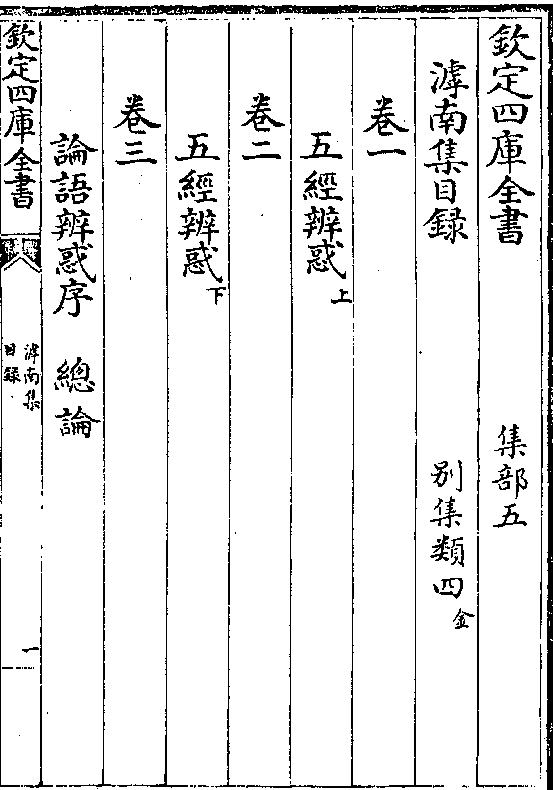 欽定四庫全書 集部五
滹南集目録 别集類四金
卷一
五經辨惑上
卷二
五經辨惑下
卷三
論語辨惑序 總論
欽定四庫全書
滹南集
目録
一